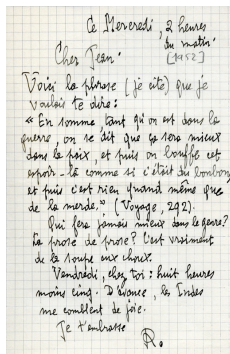 Ce Mercredi, 2 heures
du matin
[1952]
Cher Jean.
Voici la phrase (je cite) que je
voulais te dire :
« En somme tant qu'on est dans la
guerre, on se dit que ça sera mieux
dans la paix, et puis on bouffe cet
espoir-là comme si c'était du bonbon
et puis c'est rien quand même que
de la merde. » (Voyage, 292).
Qui fera jamais mieux dans le genre?
la prose de prose? C'est vraiment
de la soupe aux choux.
Vendredi, chez toi : huit heures
moins cinq. D'avance, les Indes
me comblent de joie.
Je t'embrasse
R.